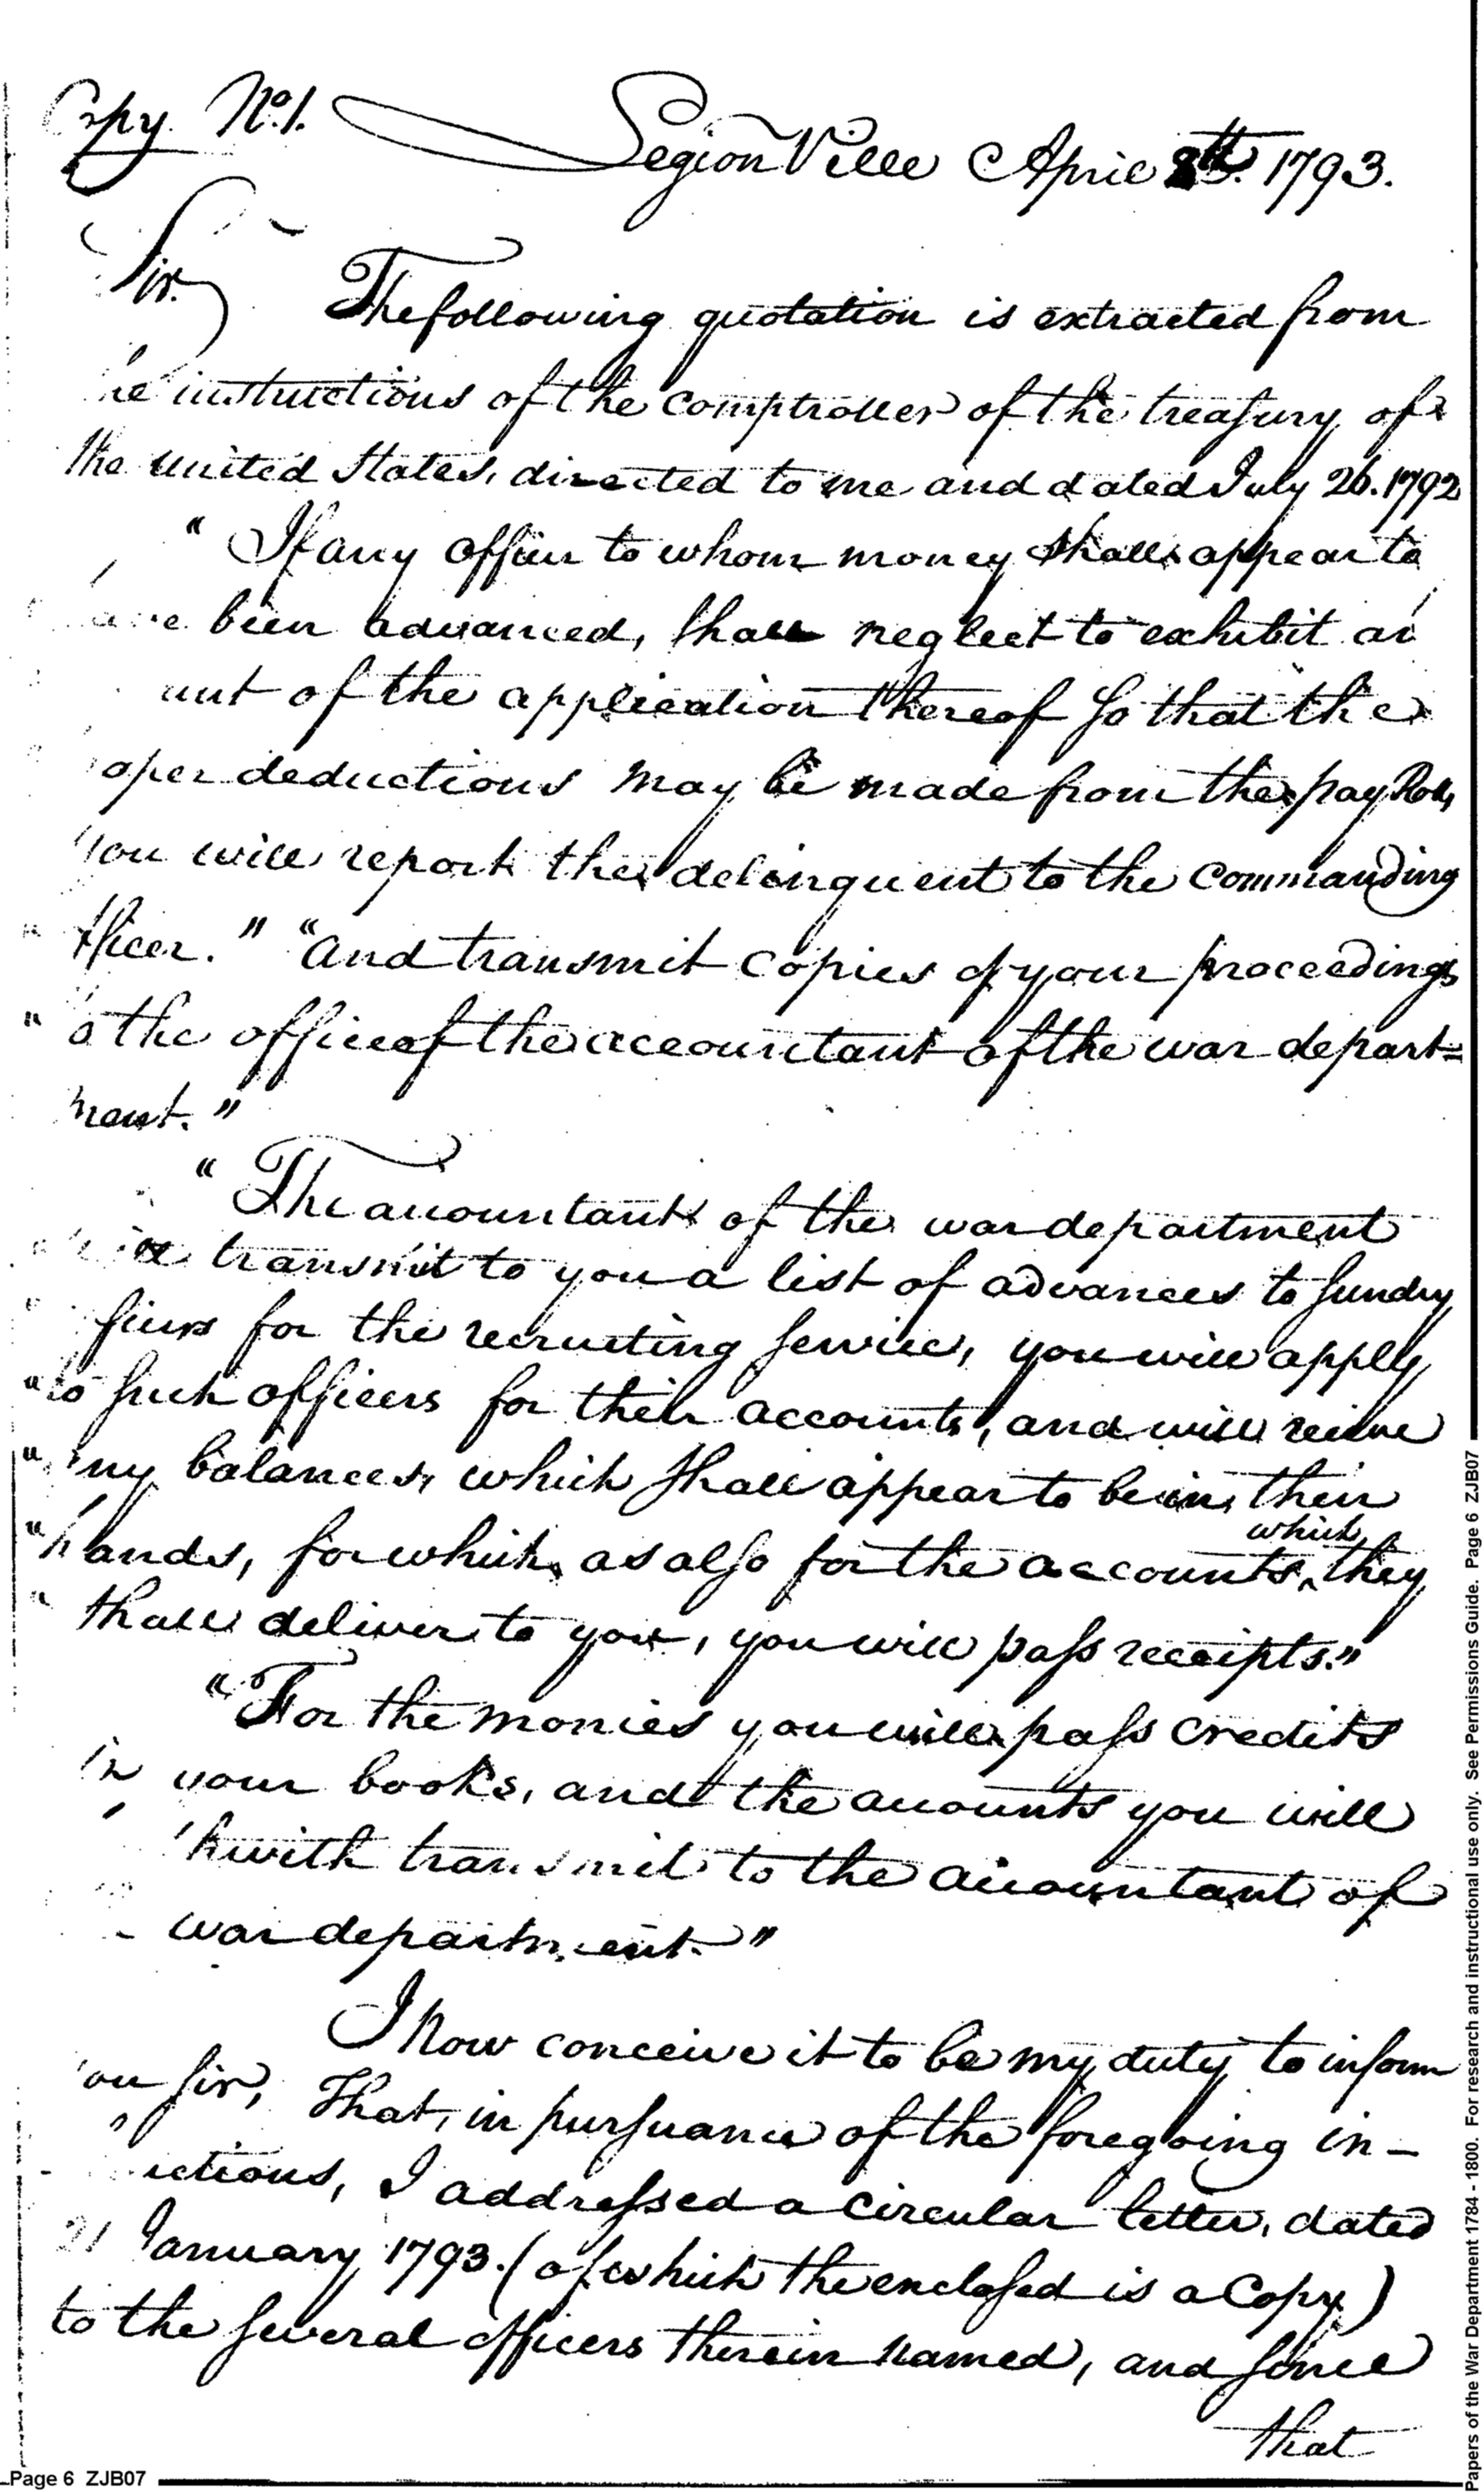 Copy No. 1. Legion Ville April 8th. 1793.
Sir.
The following quotation is extracted from
he instructions of the comptroller of the treasury of
the united States, directed to me and dated July 26. 1792
" If any officer to whom money shall appear to
ave been advanced, shall neglect to exhibit an
unt of the application thereof so that the
oper deductions may be made from the pay Roll,
you will report the delinquent to the Commanding
" fficer." "And transmit copies of your proceedings
" o the office of the accountant of the war depart=
ment."
" The accountant of the war department
will transmit to you a list of advances to sundry
" ficers for the recruiting service, you will apply
" to such officers for their accounts, and will receive
" any balances, which shall appear to be in their
" hands, for which, as also for the accounts, which they
" shall deliver to you, you will pass receipts."
" For the monies you will pass credits
in your books, and the accounts you will
thwith transmit to the accountant of
war department."
I Now conceive it to be my duty to inform
you sir, That, in pursuance of the foregoing in-
uctions, I addressed a circular letter, dated
21 January 1793. (of which the enclosed is a Copy)
to the several officers therein named, and since
that
Page 6 ZJB07
Papers of the War Department 1784 - 1800. For research and instructional use only. See Permissions Guide. Page 6 ZJB07